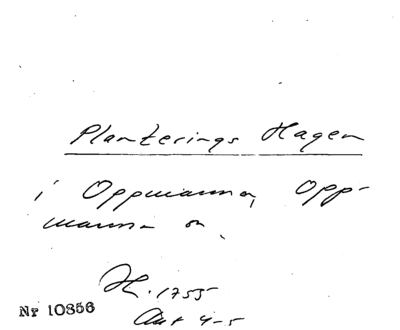 Planterings Hagen
i Oppmanna, Opp-
manna sn.
H. 1755
Akt 4-5
Nr 10856